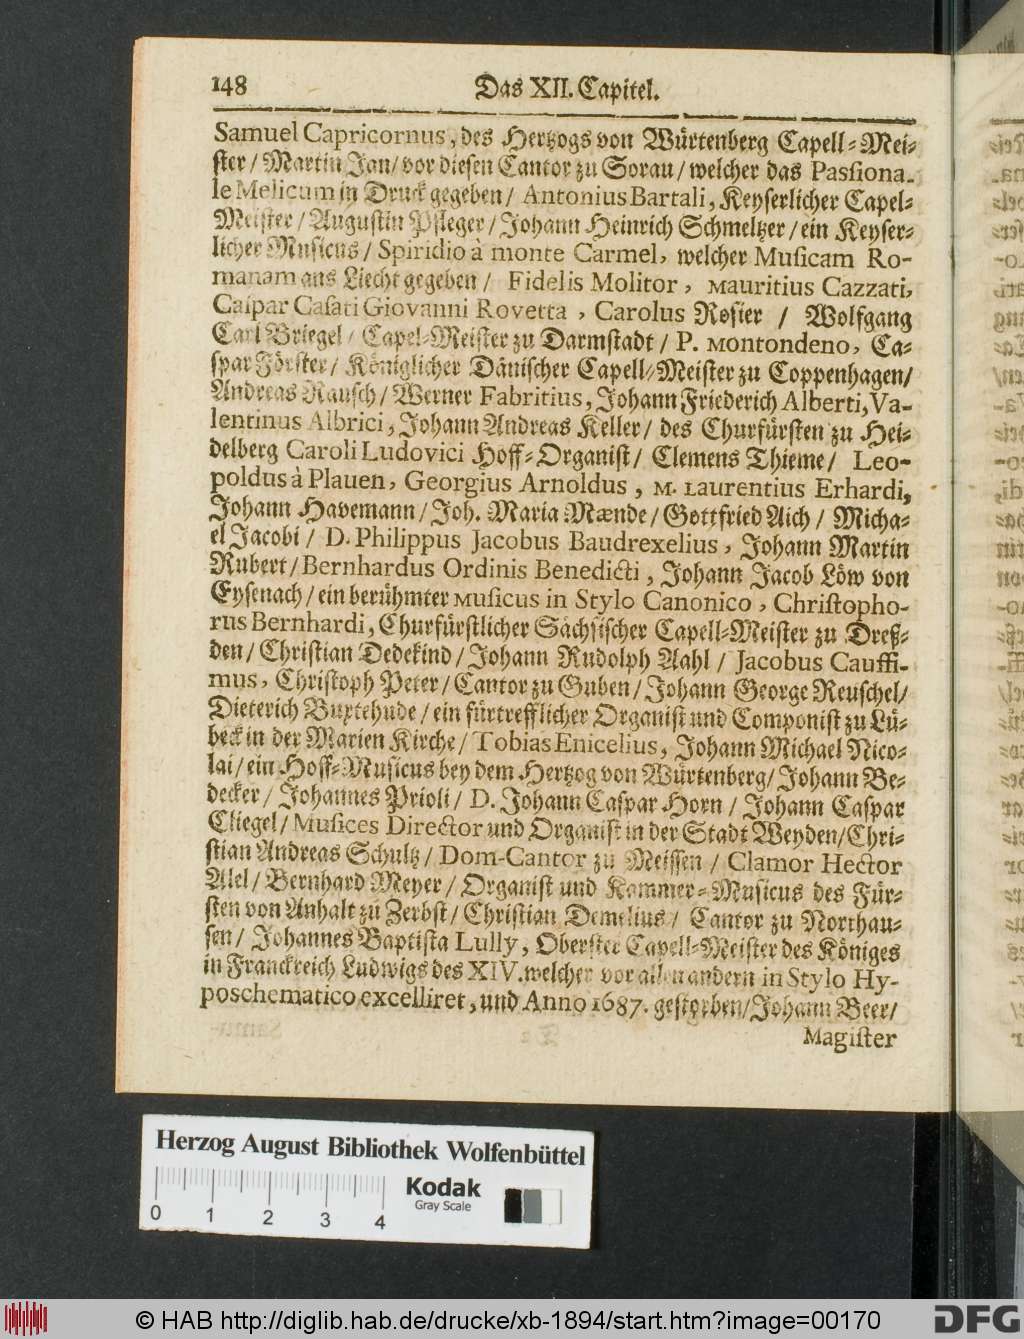 148 Das XII. Capitel.
Samuel Capricornus, des Hertzogs von Würtenberg Capell-Mei-
ster / Martin Jan / vor diesen Cantor zu Sorau / welcher das Passiona-
le Melicum in Druck gegeben / Antonius Bartali, Keyserlicher Capel-
Meister / Augustin Pfleger / Johann Heinrich Schmeltzer / ein Keyser-
licher Musicus / Spiridio à monte Carmel, welcher Musicam Ro-
manam ans Liecht gegeben / Fidelis Molitor, Mauritius Cazzati,
Caspar Casati Giovanni Rovetta, Carolus Rosier / Wolfgang
Carl Briegel / Capel-Meister zu Darmstadt / P. Montondeno, Ca-
spar Förster / Königlicher Dänischer Capell-Meister zu Coppenhagen /
Andreas Rausch / Werner Fabritius, Johann Friederich Alberti, Va-
lentinus Albrici, Johann Andreas Keller / des Churfürsten zu Hei-
delberg Caroli Ludovici Hoff-Organist / Clemens Thieme / Leo-
poldus à Plauen, Georgius Arnoldus, M. Laurentius Erhardi,
Johann Havemann / Joh. Maria Mænde / Gottfried Aich / Micha-
el Jacobi / D. Philippus Jacobus Baudrexelius, Johann Martin
Rubert / Bernhardus Ordinis Benedicti, Johann Jacob Löw von
Eysenach / ein berühmter Musicus in Stylo Canonico, Christopho-
rus Bernhardi, Churfürstlicher Sächsischer Capell-Meister zu Dreß-
den / Christian Dedekind / Johann Rudolph Aahl / Jacobus Cauffi-
mus, Christoph Peter / Cantor zu Guben / Johann George Reuschel /
Dieterich Buxtehude / ein fürtrefflicher Organist und Componist zu Lü-
beck in der Marien Kirche / Tobias Enicelius, Johann Michael Nico-
lai / ein Hoff-Musicus bey dem Hertzog von Würtenberg / Johann Be-
decker / Johannes Prioli / D. Johann Caspar Horn / Johann Caspar
Cliegel / Musices Director und Organist in der Stadt Weyden / Chri-
stian Andreas Schultz / Dom-Cantor zu Meissen / Clamor Hector
Alel / Bernhard Meyer / Organist und Kammer-Musicus des Für-
sten von Anhalt zu Zerbst / Christian Demelius / Cantor zu Northau-
sen / Johannes Baptista Lully, Oberster Capell-Meister des Königes
in Franckreich Ludwigs des XIV. welcher vor allen andern in Stylo Hy-
poschematico excelliret, und Anno 1687. gestorben / Johann Beer /
Magister
Herzog August Bibliothek Wolfenbüttel
0 1 2 3 4
Kodak
Gray Scale
© HAB http://diglib.hab.de/drucke/xb-1894/start.htm?image=00170
DFG